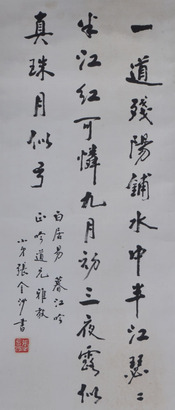 一道殘陽鋪水中半江瑟〻
半江紅可憐九月初三夜露似
真珠月似弓
白居易 暮江吟
正吟道兄雅教
小弟張金沙書